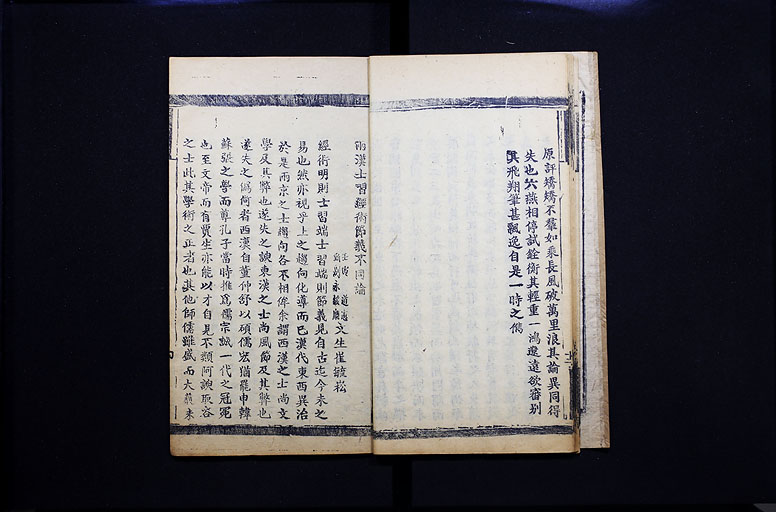 原評矯矯不羣如乘長風破萬里浪其論異同得
失也六燕相停試銓衡其輕重一鴻遼遠欲審別
其飛翔筆甚飄逸自是一時之儁
兩漢士習經術節義不同論
壬寅 道遵
副永 文生崔毓松
經術明則士習端士習端則節義見自古迄今未之
易也然亦視乎上之趨向化導而已漢代東西異治
於是兩京之士趨向各不相侔余謂西漢之士尚文
學及其弊也遂失之諛東漢之士尚風節及其弊也
遂失之僞何者西漢自董仲舒以碩儒宏猶罷申韓
蘇張之學而尊孔子當時推爲儒宗誠一代之冠冕
也至文帝而有賈生亦能以才自見不類阿諛取容
之士此其學術之正者也其他師儒雖盛而大雅未